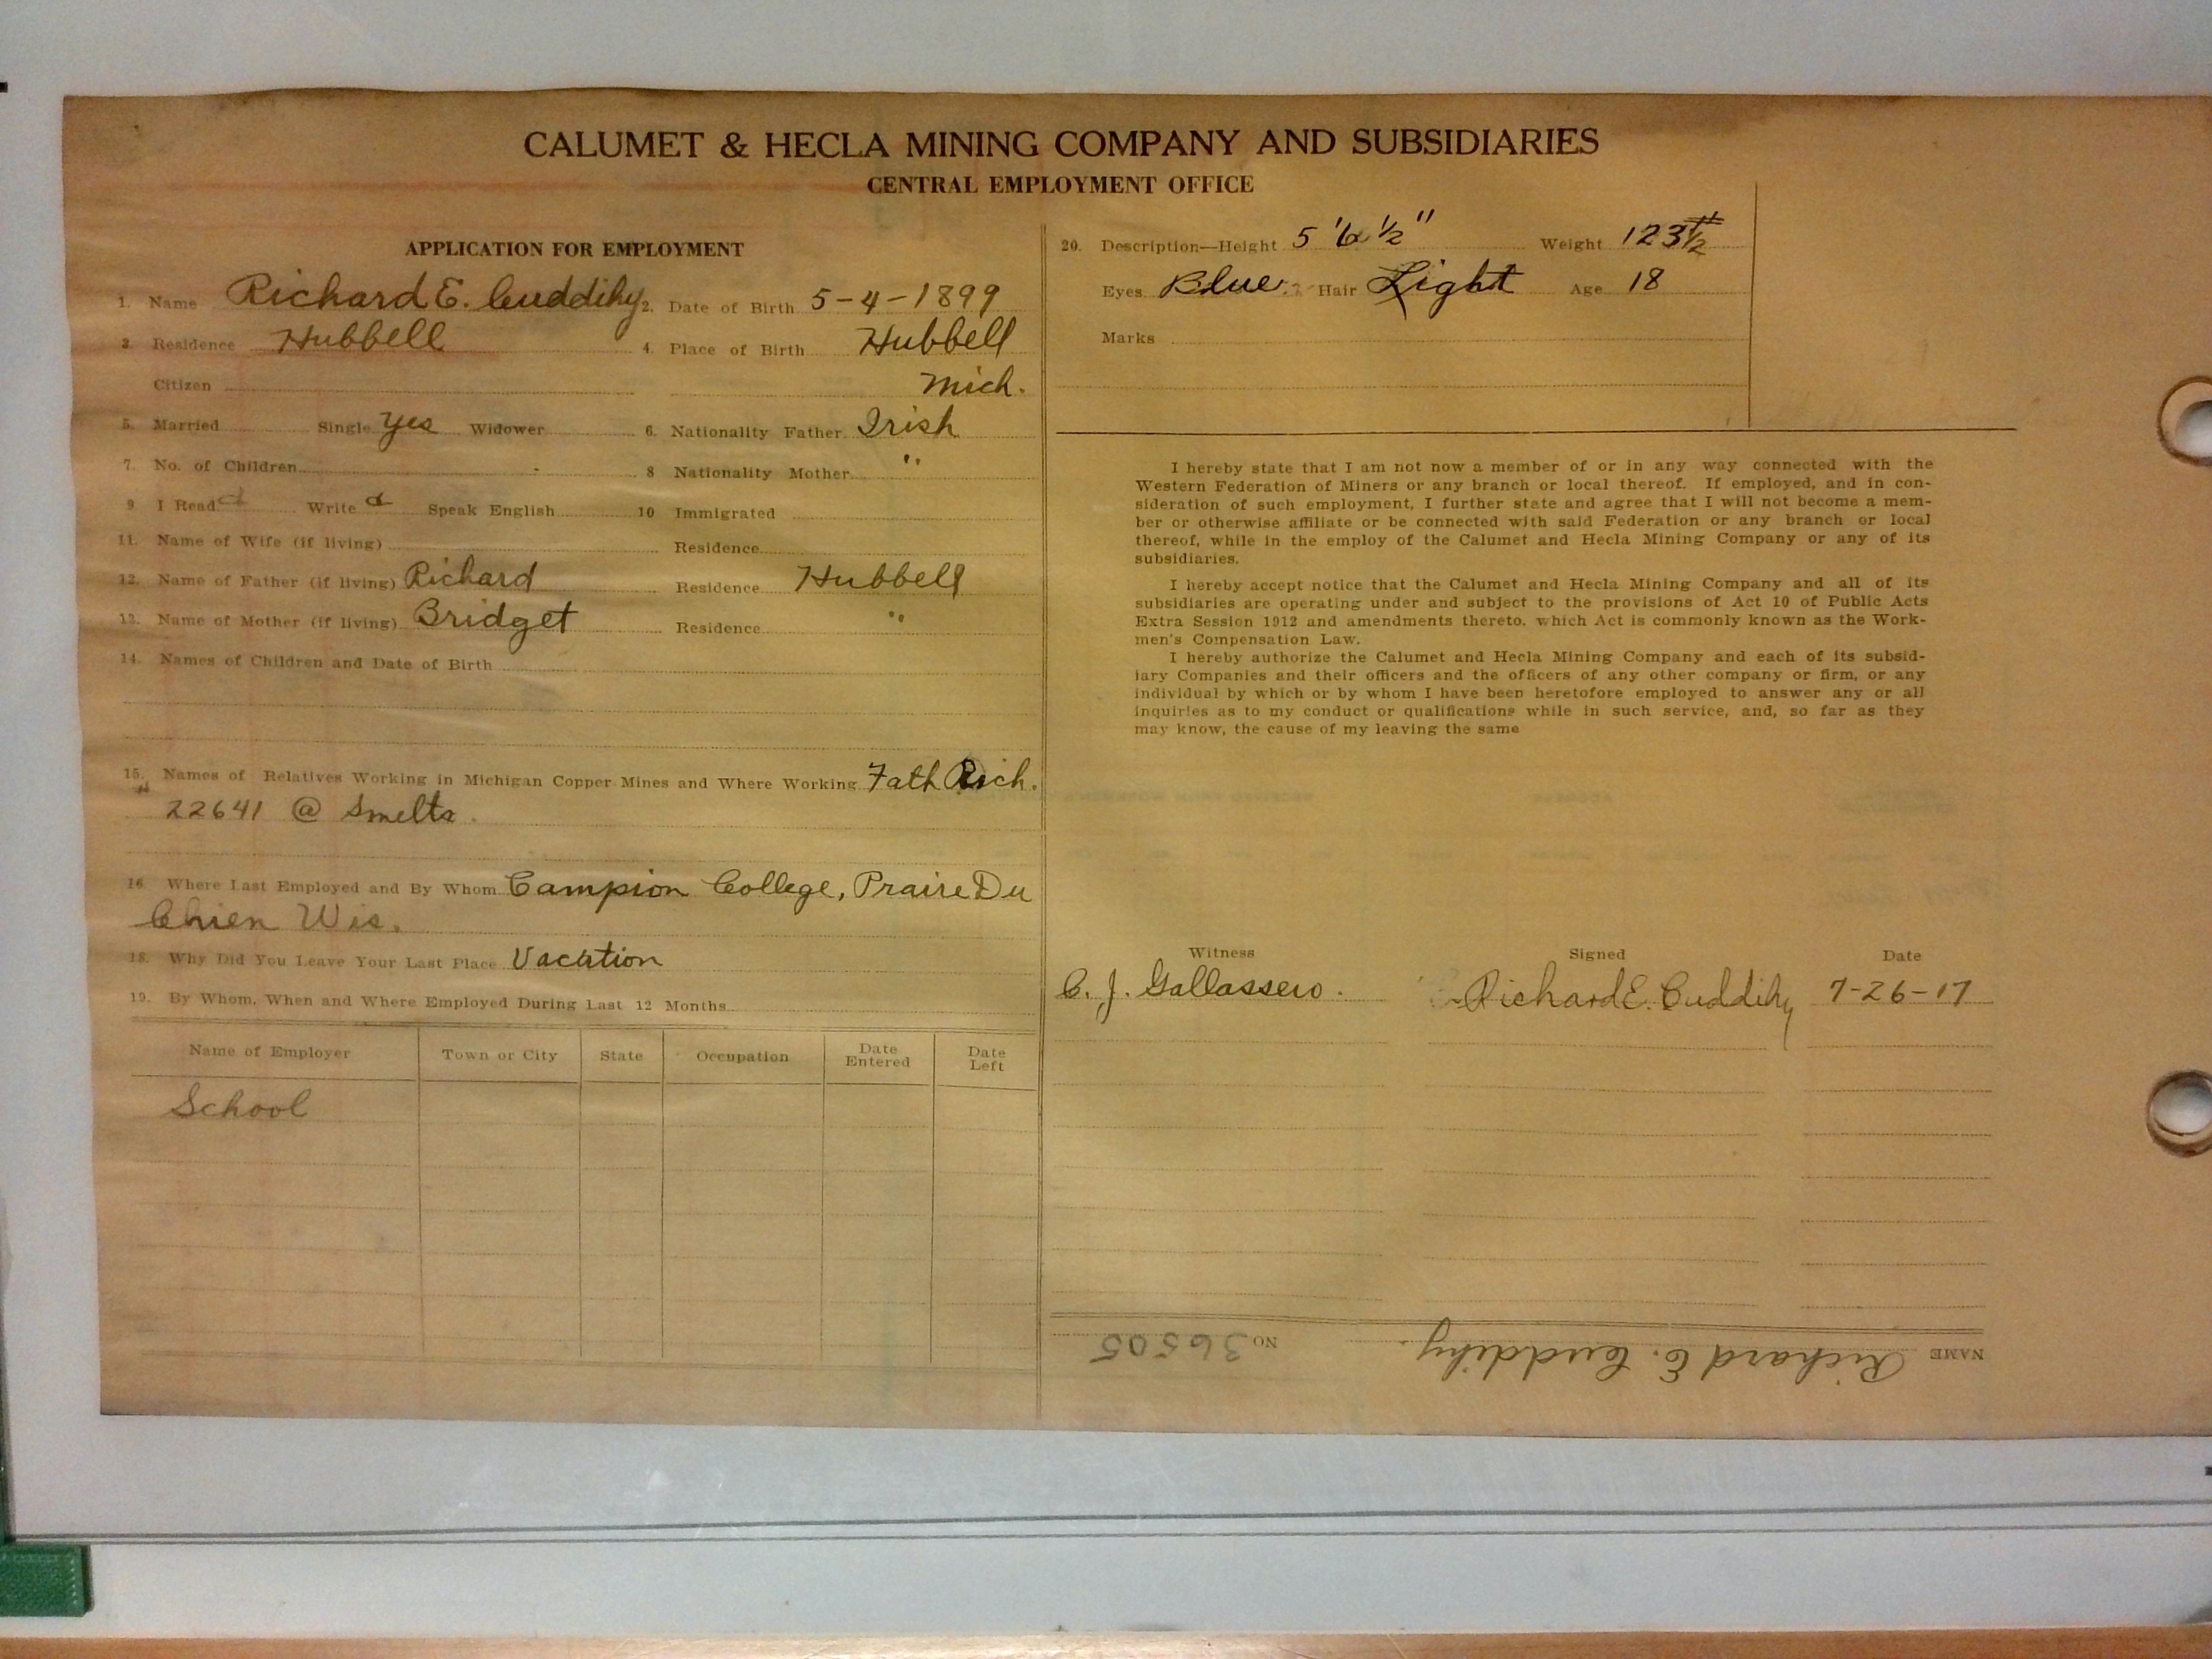 CALUMET & HECLA MINING COMPANY AND SUBSIDIARIES
CENTRAL EMPLOYMENT OFFICE
APPLICATION FOR EMPLOYMENT
1. Name Richard E. Cuddihy 2. Date of Birth 5-4-1899
3. Residence Hubbell 4. Place of Birth Hubbell
Citizen Mich.
5. Married Single Yes Widower 6. Nationality Father Irish
7. No. of Children 8 Nationality Mother "
9 I Read Write Speak English 10 Immigrated
11. Name of Wife (if living) Residence
12. Name of Father (if living) Richard Residence Hubbell
13. Name of Mother (if living) Bridget Residence "
14. Names of Children and Date of Birth
15. Names of Relatives Working in Michigan Copper Mines and Where Working Fath Rich.
22641 @ Smelts.
16. Where Last Employed and By Whom Campion College, Praire Du
Chien Wis.
18. Why Did You Leave Your Last Place Vacation
19. By Whom, When and Where Employed During Last 12 Months
Name of Employer Town or City State Occupation Date Entered Date Left
School
20. Description—Height 5' 6 1/2" Weight 123 1/2
Eyes Blue Hair Light Age 18
Marks
I hereby state that I am not now a member of or in any way connected with the
Western Federation of Miners or any branch or local thereof. If employed, and in con-
sideration of such employment, I further state and agree that I will not become a mem-
ber or otherwise affiliate or be connected with said Federation or any branch or local
thereof, while in the employ of the Calumet and Hecla Mining Company or any of its
subsidiaries.
I hereby accept notice that the Calumet and Hecla Mining Company and all of its
subsidiaries are operating under and subject to the provisions of Act 10 of Public Acts
Extra Session 1912 and amendments thereto, which Act is commonly known as the Work-
men's Compensation Law.
I hereby authorize the Calumet and Hecla Mining Company and each of its subsid-
iary Companies and their officers and the officers of any other company or firm, or any
individual by which or by whom I have been heretofore employed to answer any or all
inquiries as to my conduct or qualifications while in such service, and, so far as they
may know, the cause of my leaving the same
Witness Signed Date
C. J. Gallassero. Richard E. Cuddihy 7-26-17
NAME Richard E. Cuddihy. NO 36505